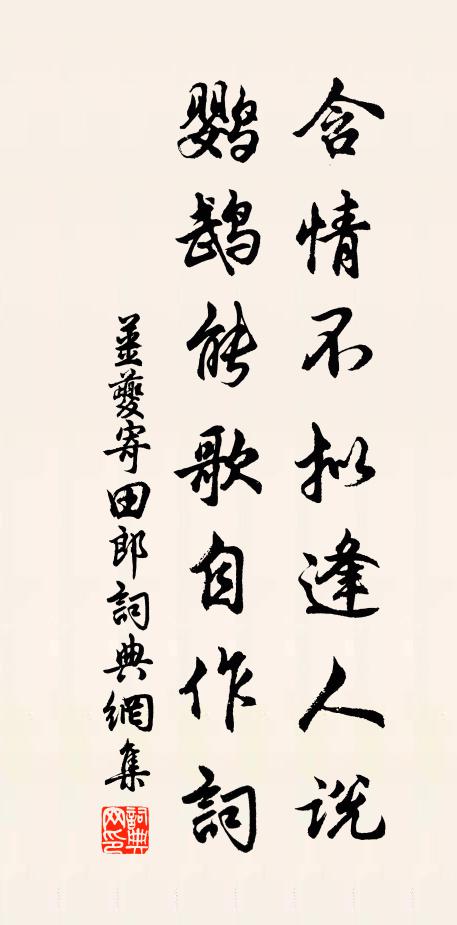 含情不拟逢人說
鹦鹉能歌自作詞
姜夔寄田郎詞典網集
詞典网印